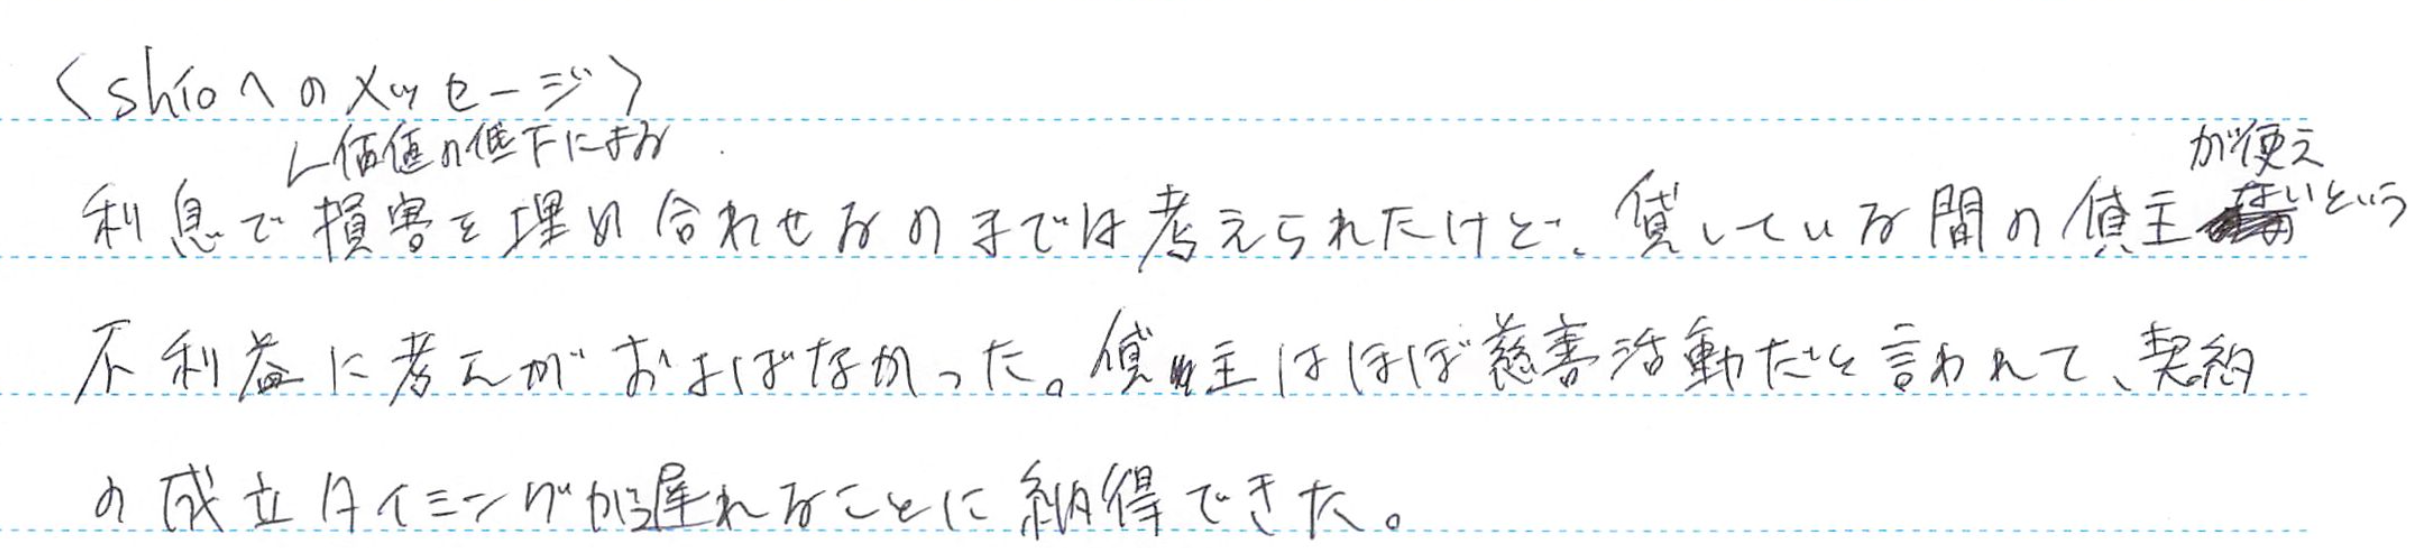 〈shioへのメッセージ〉
価値の低下による
が使え
利息で損害を埋め合わせるのまでは考えられたけど、貸している間の貸主ないという
不利益に考えがおよばなかった。貸主はほぼ慈善活動だと言われて、契約
の成立タイミングが遅れることに納得できた。